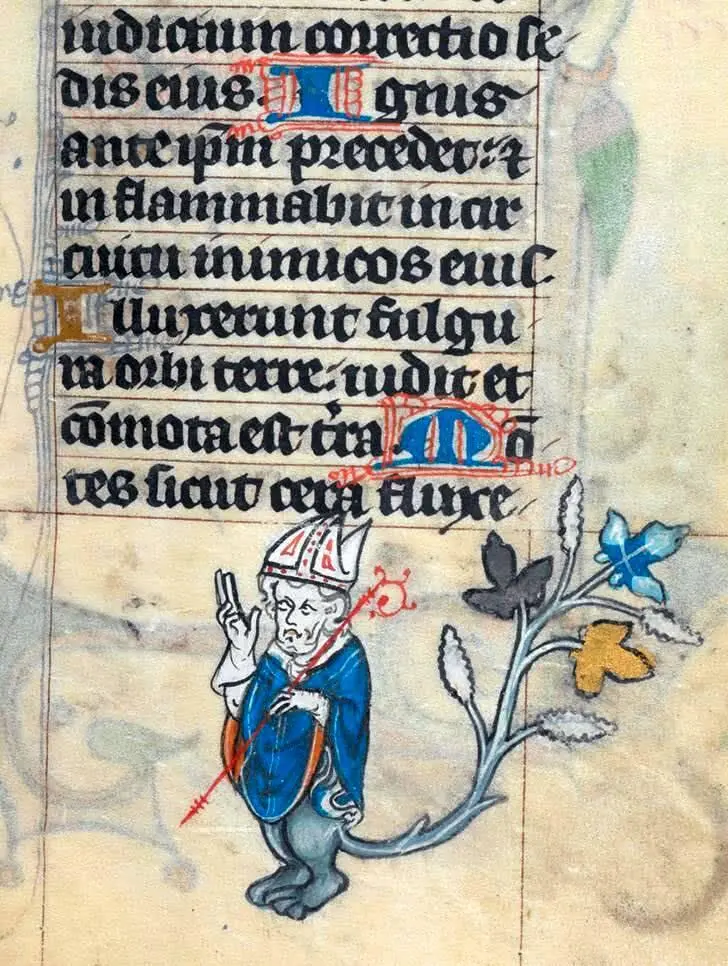 iudicium correctio se
dis eius. Ignis
ante ip̄m precedet: ⁊
inflammabit in cir
cuitu inimicos eius
Illuxerunt fulgu
ra orbi terre: uidit et
cōmota est t̓ra. Mō
tes sicut cera fluxe